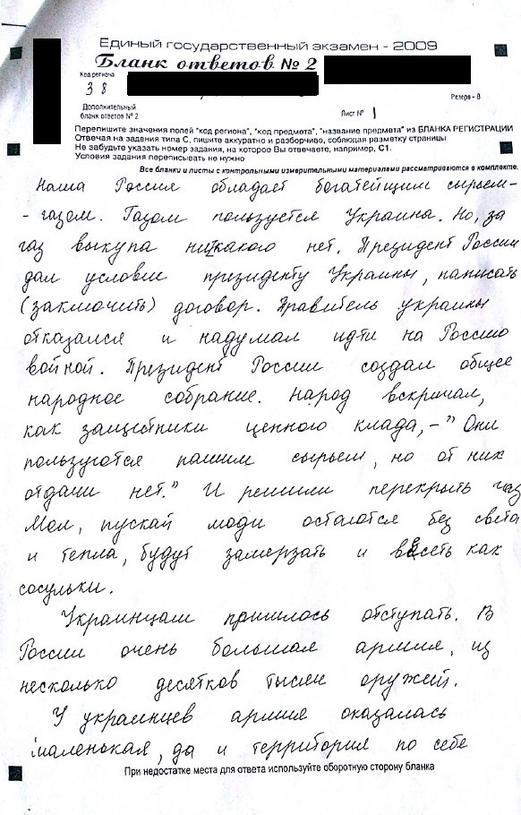 Единый государственный экзамен - 2009
Бланк ответов № 2
Код региона
3 8
Резерв - 8
Дополнительный
бланк ответов № 2
Лист № 1
Перепишите значения полей "код региона", "код предмета", "название предмета" из БЛАНКА РЕГИСТРАЦИИ
Отвечая на задания типа С, пишите аккуратно и разборчиво, соблюдая разметку страницы
Не забудьте указать номер задания, на которое Вы отвечаете, например, С1.
Условия задания переписывать не нужно
Все бланки и листы с контрольными измерительными материалами рассматриваются в комплекте.
Наша Россия обладает богатейщим сырьем-
- газом. Газом пользуется Украина. Но, за
газ выкупа никакого нет. Президент России
дал условие президенту Украины, написать
(заключить) договор. Правитель украины
отказался и надумал идти на Россию
войной. Президент России создал общее
народное собрание. Народ вскричал,
как защитники ценного клада, – " Они
пользуются нашим сырьем, но от них
отдачи нет." И решили перекрыть газ
Мол, пускай люди остаются без света
и тепла, будут замерзать и висеть как
сосульки.
Украинцам пришлось отступать. В
России очень большая армия, из
несколько десятков тысяч оружей.
У украинцев армия оказалась
маленькая, да и территория по себе
При недостатке места для ответа используйте оборотную сторону бланка